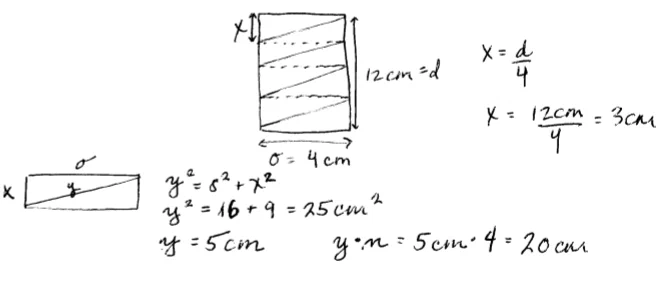 x
12cm = d
x = d/4
σ = 4cm
x = 12cm/4 = 3cm
σ
x
y
y² = σ² + x²
y² = 16 + 9 = 25cm²
y = 5cm
y·n = 5cm·4 = 20cm